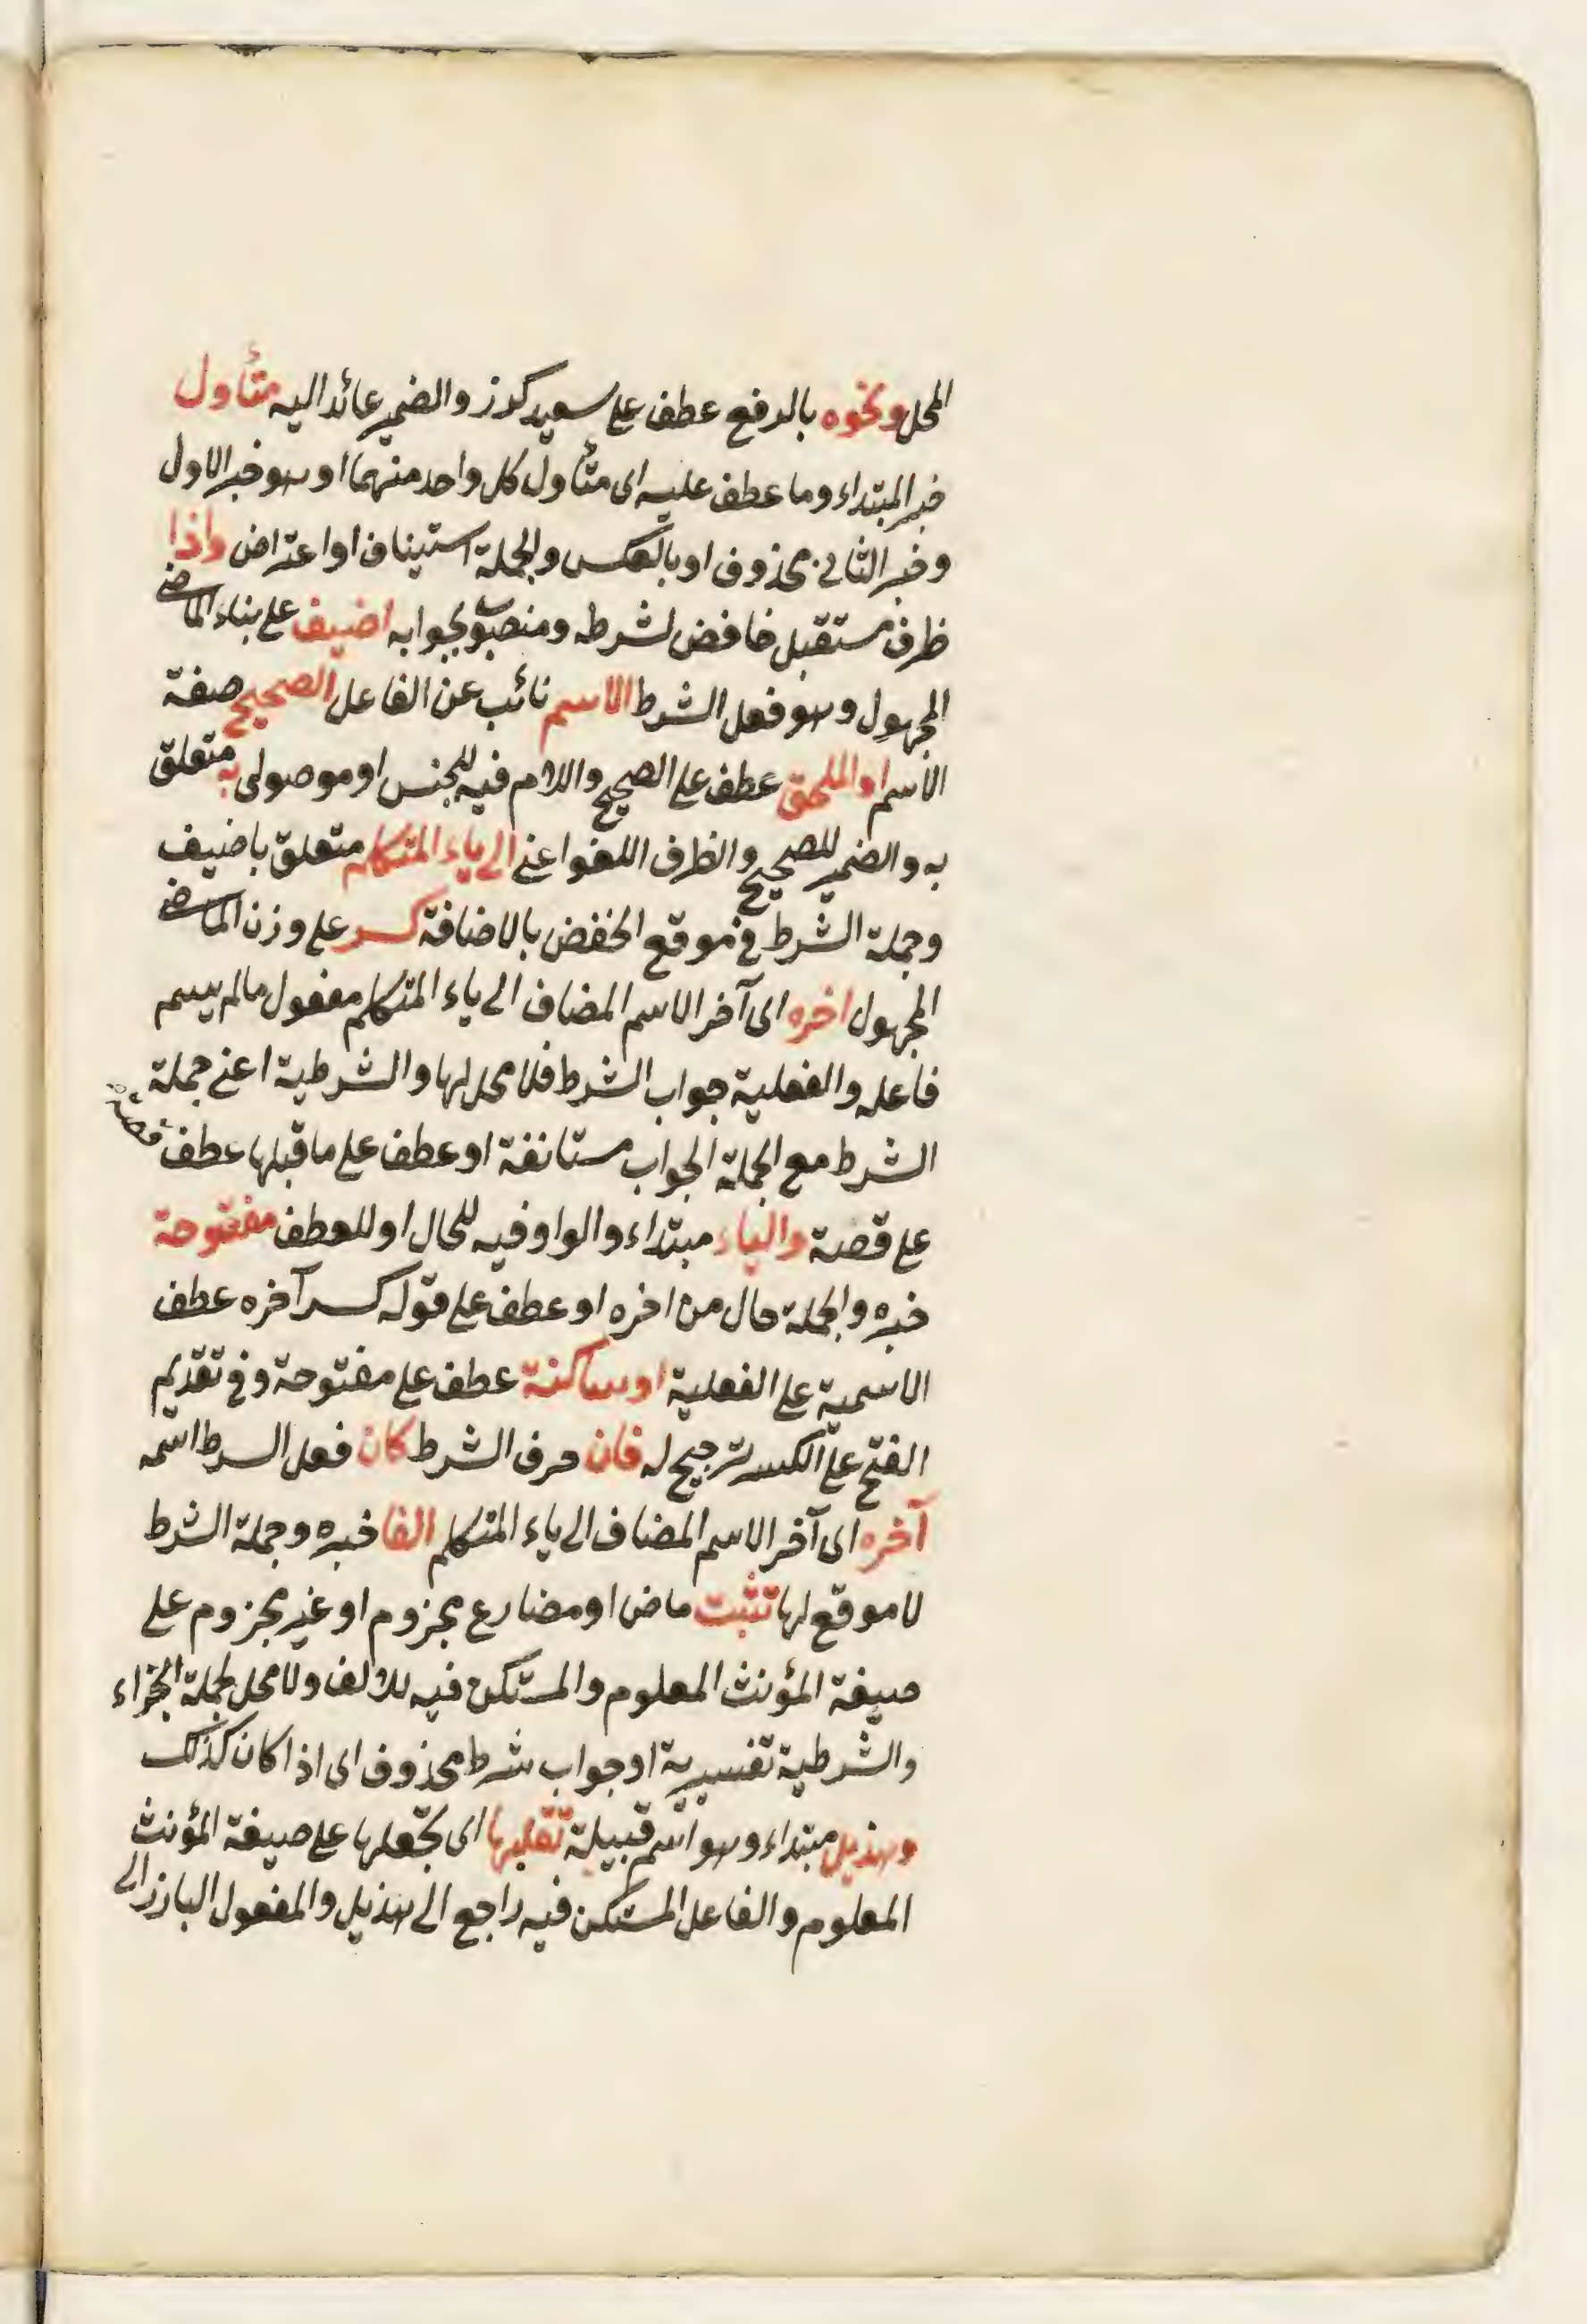 المحل ونحوه بالرفع عطف على سعيد كرز والضمير عائد اليه متأول
خبر المبتداء وما عطف عليه اى متأول كل واحد منهما او هو خبر الاول
وخبر الثانى محذوف او بالعكس والجملة استيناف او اعتراض واذا
ظرف مستقبل خافض لشرطه ومنصوب بجوابه اضيف على بناء الماضى
المجهول وهو فعل الشرط الاسم نائب عن الفاعل الصحيح صفة
الاسم او الملحق عطف على الصحيح واللام فيه للجنس او موصولى به متعلق
به والضمير للصحيح والظرف اللغو اعنى الى ياء المتكلم متعلق باضيف
وجملة الشرط فى موقع الخفض بالاضافة كسر على وزن الماضى
المجهول اخره اى آخر الاسم المضاف الى ياء المتكلم مفعول مالم يسم
فاعله والفعلية جواب الشرط فلا محل لها والشرطية اعنى جملة
الشرط مع الجملة الجواب مستانفة او عطف على ما قبلها عطف قصة
على قصة والياء مبتداء والواو فيه للحال او للعطف مفتوحة
خبره والجملة حال من اخره او عطف على قوله كسر آخره عطف
الاسمية على الفعلية او ساكنة عطف على مفتوحة وفى تقديم
الفتح على الكسر ترجيح له فان حرف الشرط كان فعل السرط اسمه
آخره اى آخر الاسم المضاف الى ياء المتكلم الفا خبره وجملة الشرط
لا موقع لها تثبت ماض او مضارع مجزوم او غير مجزوم على
صيغة المؤنث المعلوم والمستكن فيه للالف ولا محل لجملة الجزاء
والشرطية تفسيرية او جواب شرط محذوف اى اذا كان كذلك
وهذيل مبتداء وهو اسم قبيلة تقلبها اى تجعلها على صيغة المؤنث
المعلوم والفاعل المستكن فيه راجع الى هذيل والمفعول البارز الى